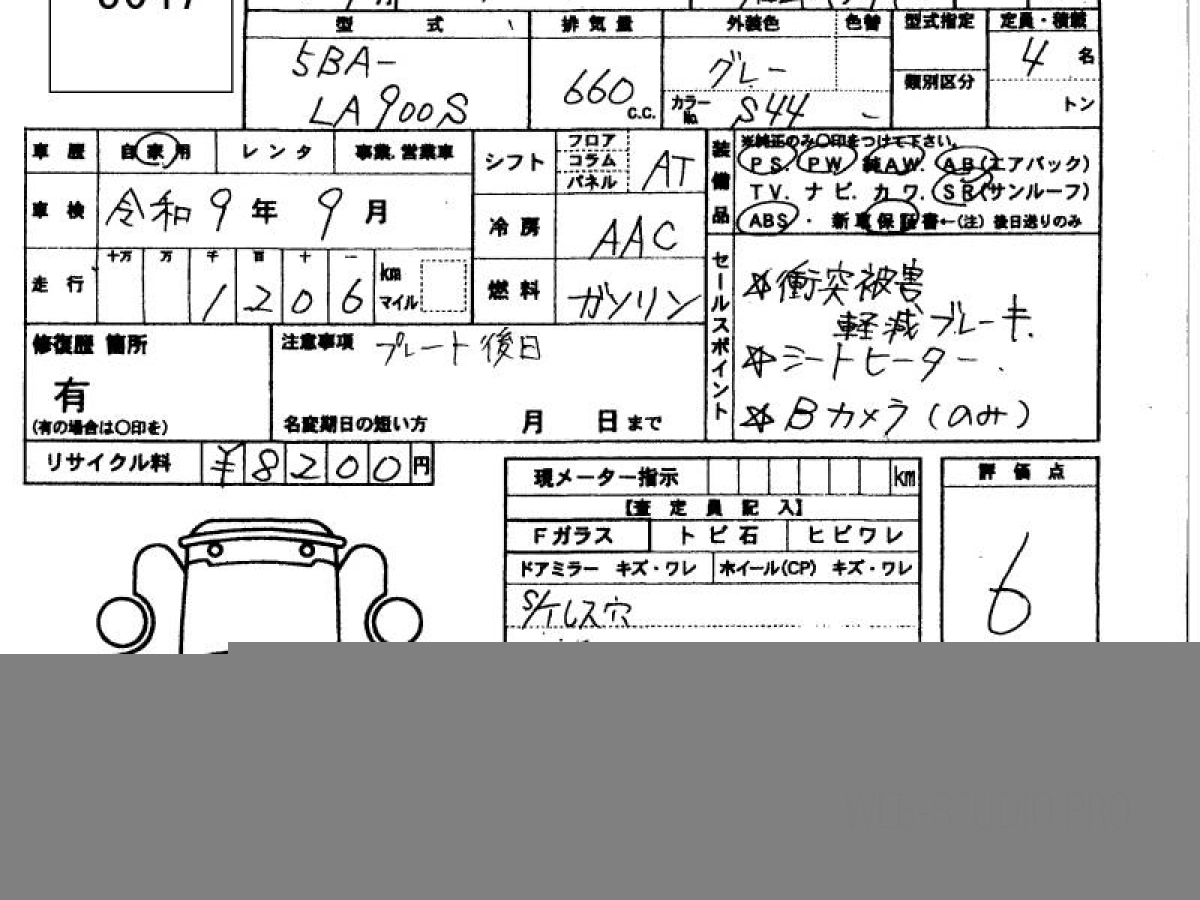 型 式 排 気 量 外装色 色替 型式指定 定員・積載
5BA-
LA900S
660 c.c.
グレー
カラーNo. S44
類別区分
4 名
トン
車 歴 自 家 用 レ ン タ 事業.営業車
シフト フロア コラム パネル AT
装備品
※純正のみ〇印をつけて下さい。
PS. PW. 純AW. AB(エアバック)
TV. ナビ. カワ. SR(サンルーフ)
ABS ・ 新車保証書←(注) 後日送りのみ
車 検 令和 9 年 9 月
冷 房 AAC
走 行 十万 万 千 百 十 一
1 2 0 6 km マイル
燃 料 ガソリン
セールスポイント
☆衝突被害
軽減ブレーキ.
☆シートヒーター.
☆Bカメラ(のみ)
修復歴 箇所
有
(有の場合は〇印を)
注意事項 プレート後日
名変期日の短い方 月 日 まで
リサイクル料 ¥8200 円
現メーター指示 km
【査 定 員 記 入】
Fガラス トビ石 ヒビワレ
ドアミラー キズ・ワレ ホイール(CP) キズ・ワレ
評 価 点
6